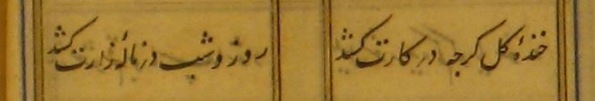 خندهٔ گل گرچه در کارت کشد
روز و شب در نالهٔ زارت کشد